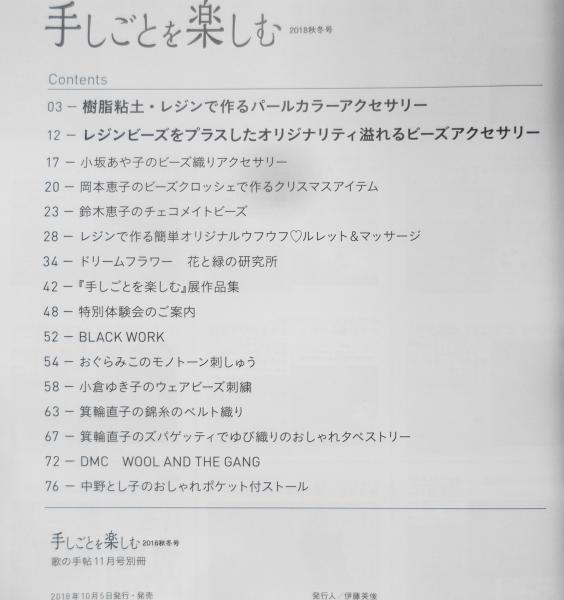 手しごとを楽しむ 2018秋冬号
Contents
03 − 樹脂粘土・レジンで作るパールカラーアクセサリー
12 − レジンビーズをプラスしたオリジナリティ溢れるビーズアクセサリー
17 − 小坂あや子のビーズ織りアクセサリー
20 − 岡本恵子のビーズクロッシェで作るクリスマスアイテム
23 − 鈴木恵子のチェコメイトビーズ
28 − レジンで作る簡単オリジナルウフウフ♡ルレット&マッサージ
34 − ドリームフラワー　花と緑の研究所
42 − 『手しごとを楽しむ』展作品集
48 − 特別体験会のご案内
52 − BLACK WORK
54 − おぐらみこのモノトーン刺しゅう
58 − 小倉ゆき子のウェアビーズ刺繍
63 − 箕輪直子の錦糸のベルト織り
67 − 箕輪直子のズパゲッティでゆび織りのおしゃれタペストリー
72 − DMC　WOOL AND THE GANG
76 − 中野とし子のおしゃれポケット付ストール
手しごとを楽しむ 2018秋冬号
歌の手帖11月号別冊
2018年10月5日発行・発売
発行人／伊藤英俊